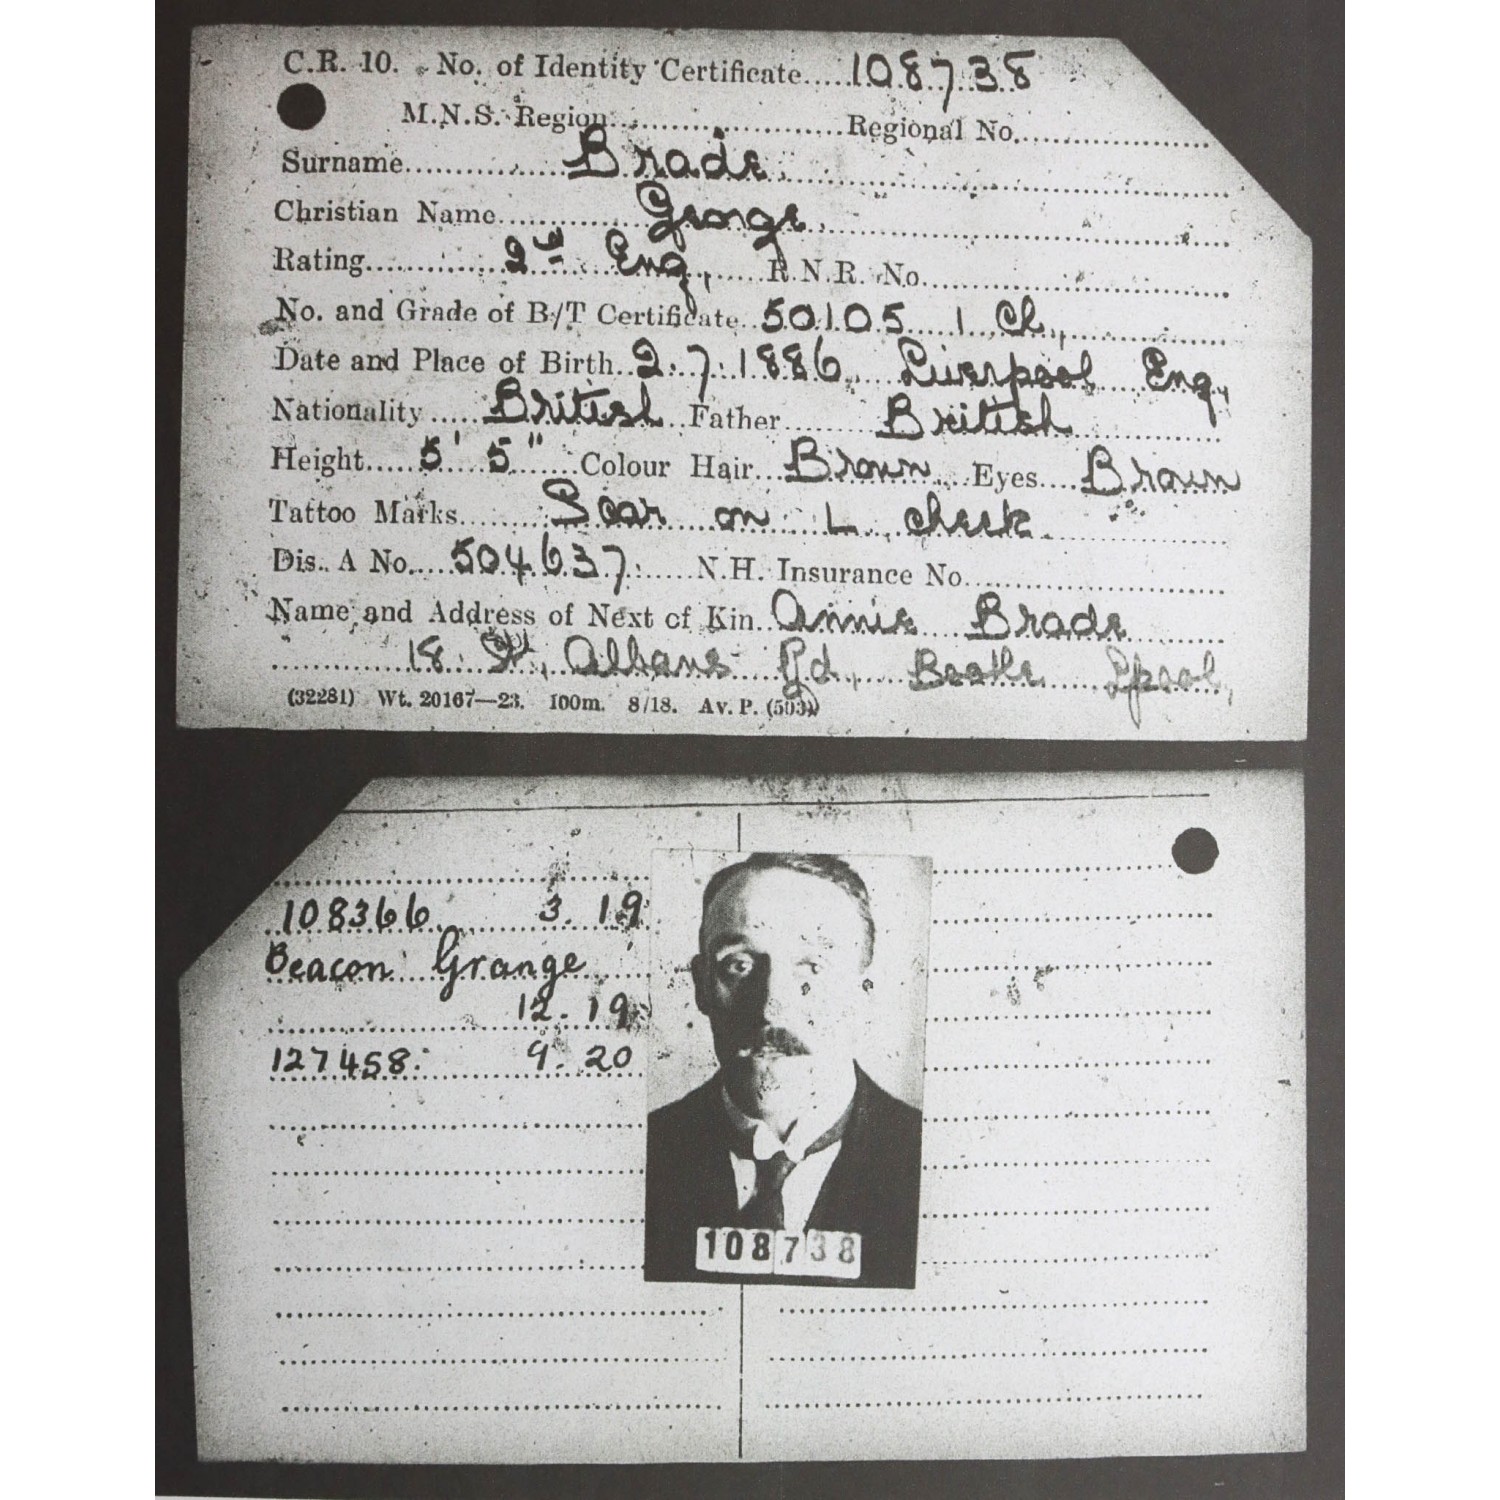 C.R. 10. No. of Identity Certificate.....108738
M.N.S. Region..................Regional No..................
Surname............Brade
Christian Name............George
Rating............2nd Eng, ......R.N.R. No..................
No. and Grade of B/T Certificate..50105....1 Cl,
Date and Place of Birth..2.7.1886, Liverpool Eng,
Nationality.....British..Father.......British
Height.....5' 5"....Colour Hair...Brown....Eyes....Brown
Tattoo Marks........Scar on L cheek.
Dis. A No....504637......N.H. Insurance No..................
Name and Address of Next of Kin..Annie Brade
18 St, Albans Rd, Bootle Lpool,
(32281) Wt. 20167—23. 100m. 8/18. Av. P. (503)
108366 3.19
Beacon Grange
12.19
127458. 9.20
108738